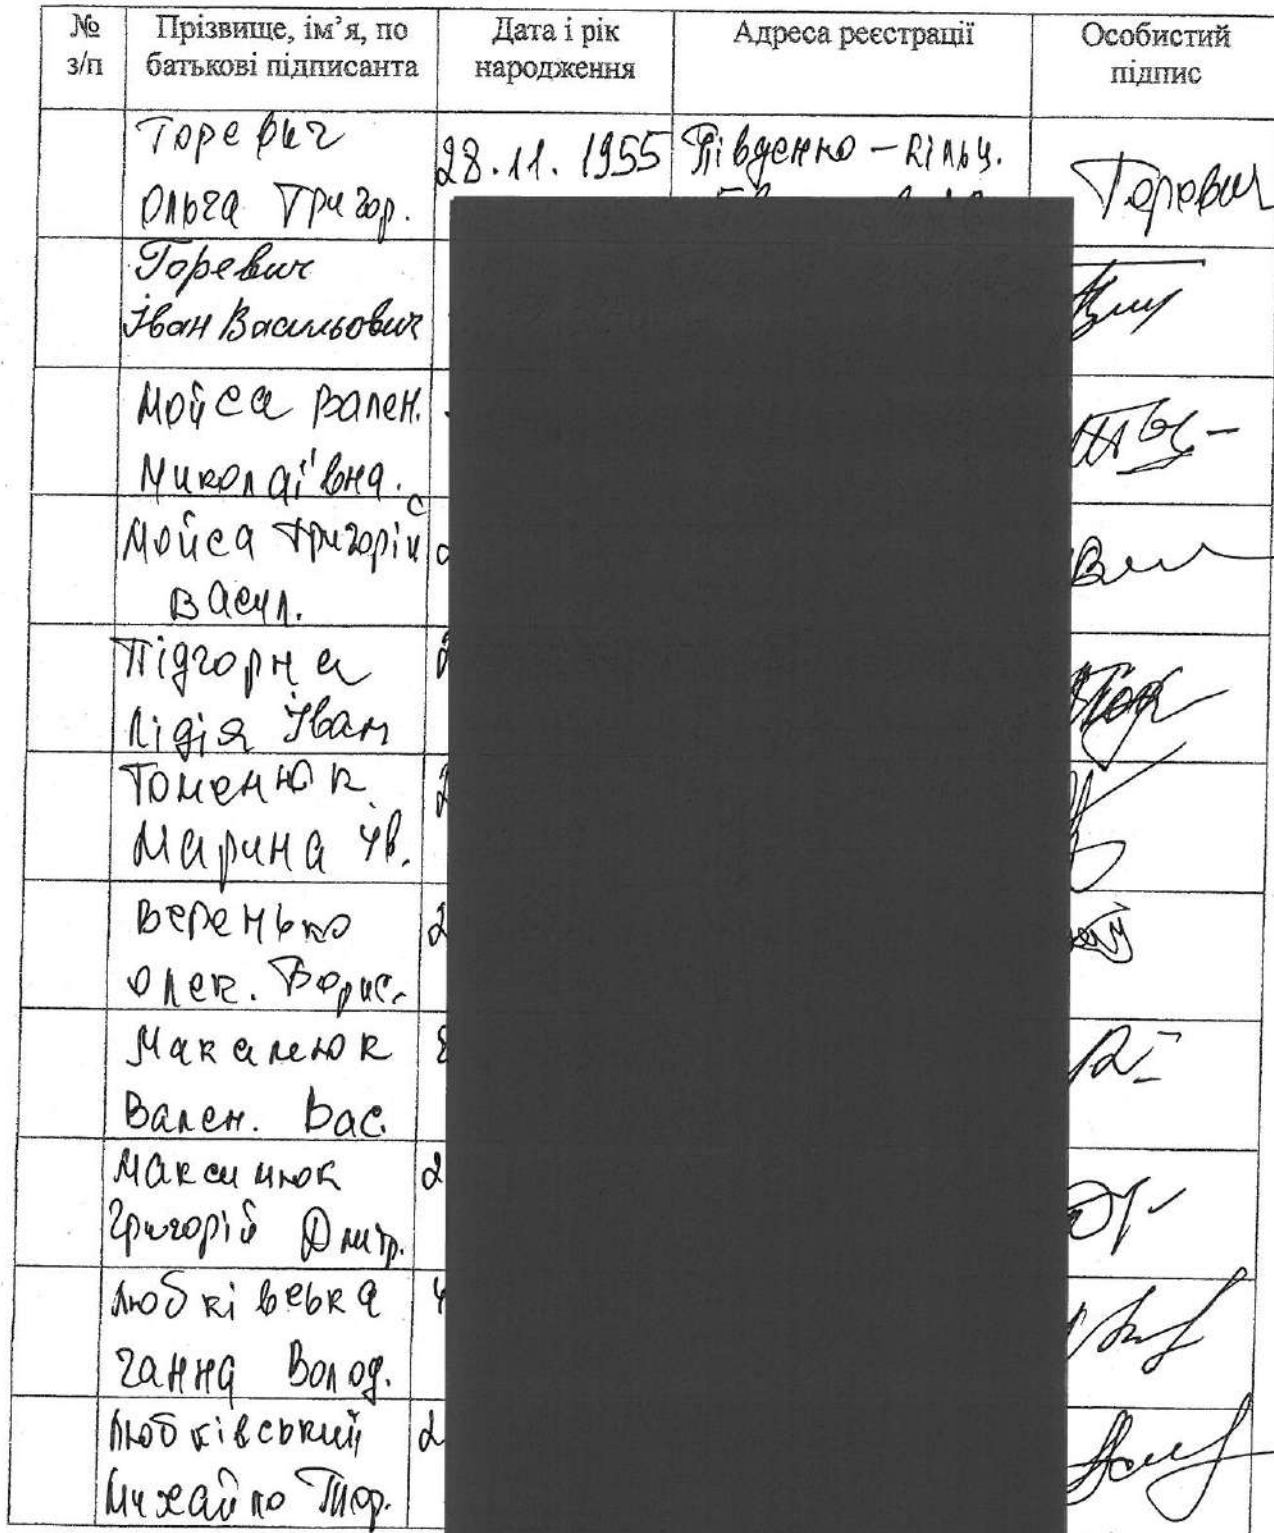 № з/п
Прізвище, ім’я, по батькові підписанта
Дата і рік народження
Адреса реєстрації
Особистий підпис
Горевич
Ольга Григор.
28.11.1955
Південно-Кільц.
Горевич
Горевич
Іван Васильович
Мойса Вален.
Миколаївна.
Мойса Григорій
Васил.
Підгорна
Лідія Іван
Томенюк
Марина Ів.
Веренько
Олек. Борис.
Макалюк
Вален. Вас.
Максимюк
Григорій Дмитр.
Любківська
Ганна Волод.
Любківський
Михайло